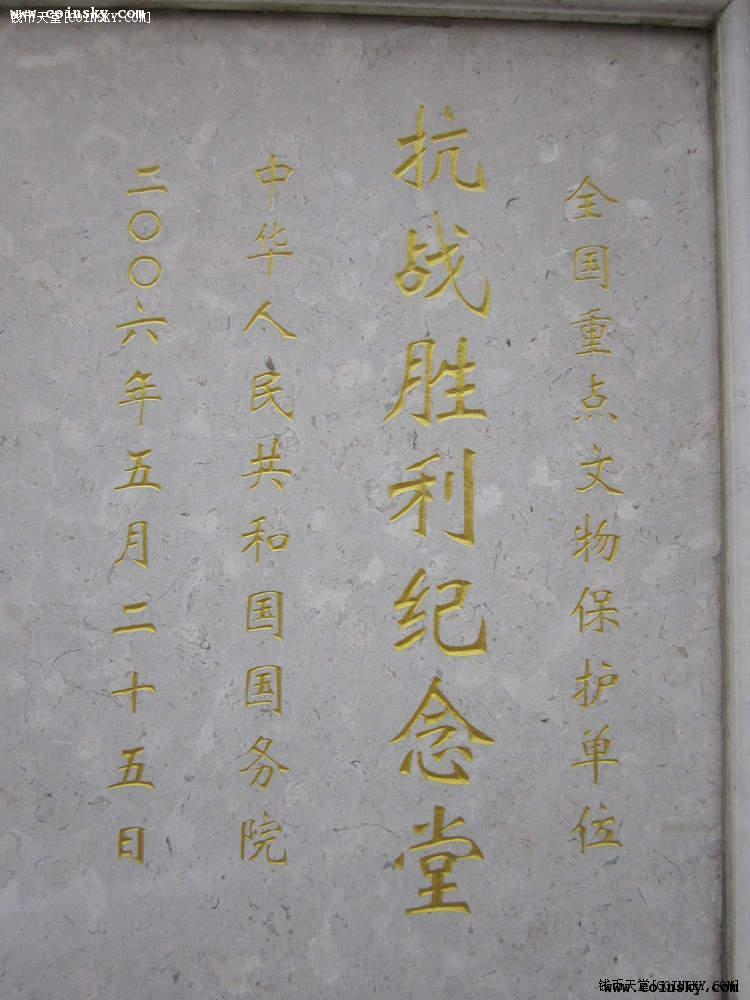 钱币天堂[COINSKY.COM]
www.coinsky.com
全国重点文物保护单位
抗战胜利纪念堂
中华人民共和国国务院
二〇〇六年五月二十五日
钱币天堂[COINSKY.COM]
www.coinsky.com